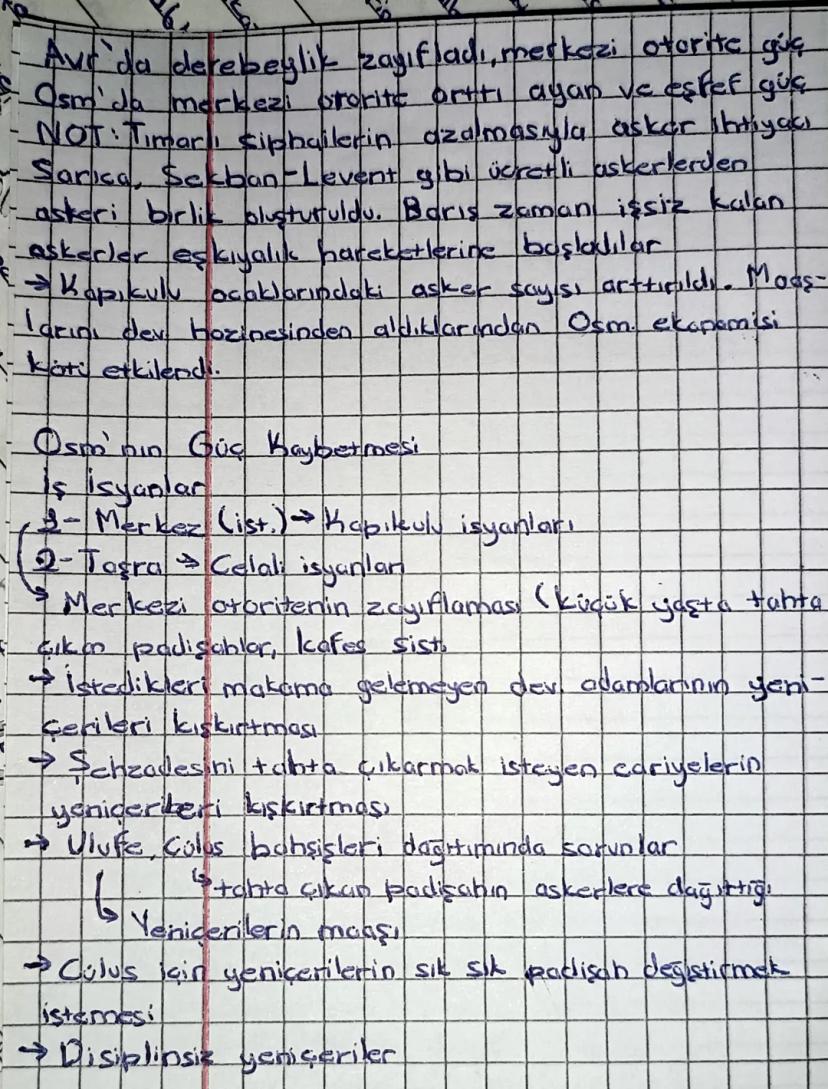 Avr'da derebeylik zayıfladı, merkezi otorite güç
Osm'da merkezi otorite arttı ayan ve eşref güç
NOT: Tımarlı siphailerin azalmasıyla asker ihtiyacı
Sarıca, Sekban-Levent gibi ücretli askerlerden
askeri birlik oluşturuldu. Barış zamanı işsiz kalan
askerler eşkıyalık hareketlerine başladılar
→ Kapıkulu ocaklarındaki asker sayısı arttırıldı. Maaş-
larını dev. hazinesinden aldıklarından Osm. ekonomisi
kötü etkilendi.
Osm'nın Güç Kaybetmesi
İş isyanlar
1- Merkez (ist.) → Kapıkulu isyanları
2- Taşra → Celali isyanları
→ Merkezi otoritenin zayıflaması (küçük yaşta tahta
çıkan padişahlar, kafes sist.
→ İstedikleri makama gelemeyen dev. adamlarının yeni-
çerileri kışkırtması
→ Şehzadesini tahta çıkarmak isteyen cariyelerin
yeniçerileri kışkırtması
→ Ulufe, Culüs bahşişleri dağıtımında sorunlar
↳ tahta çıkan padişahın askerlere dağıttığı
↳ Yeniçerilerin maaşı
→ Culus için yeniçerilerin sık sık padişah değiştirmek
istemesi
→ Disiplinsiz yeniçeriler